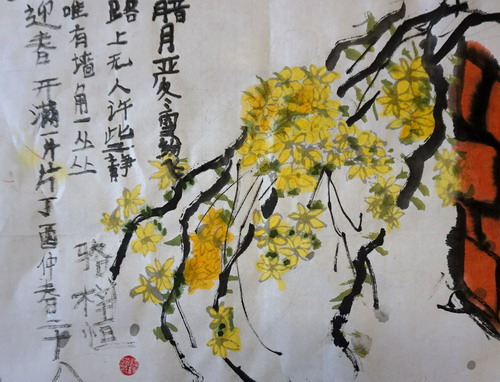 腊月严冬雪纷飞
路上无人许些静
唯有墙角一丛丛
迎春开满一片片丁酉仲春二十八
骆恒